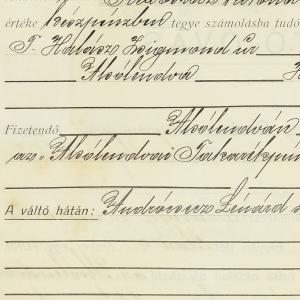 értéke készpénzben tegye számolásba tudó
T. Halász Zsigmond úr
Alsólendva
Fizetendő Alsólendván
az „Alsólendvai Takarékpén
A váltó hátán: Andróvicz Lénárd s